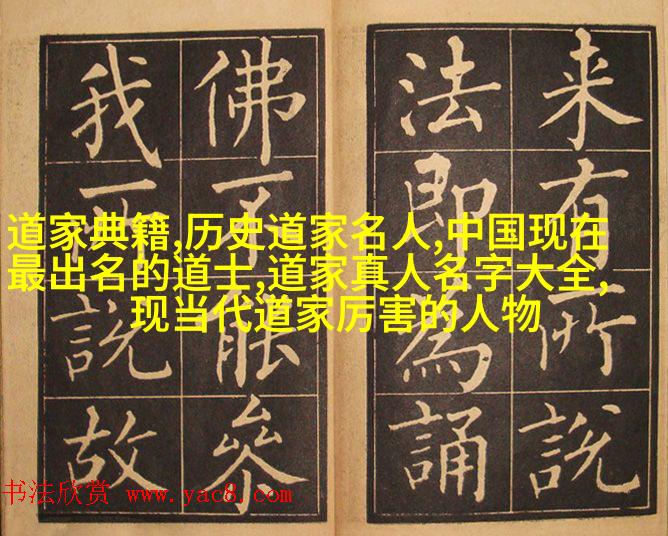 来有所說
法即為誦
佛能參
我說故
道家典籍,历史道家名人,中国现在
最出名的道士,道家真人名字大全,
现当代道家厉害的人物
书法欣赏 www.yac8.com